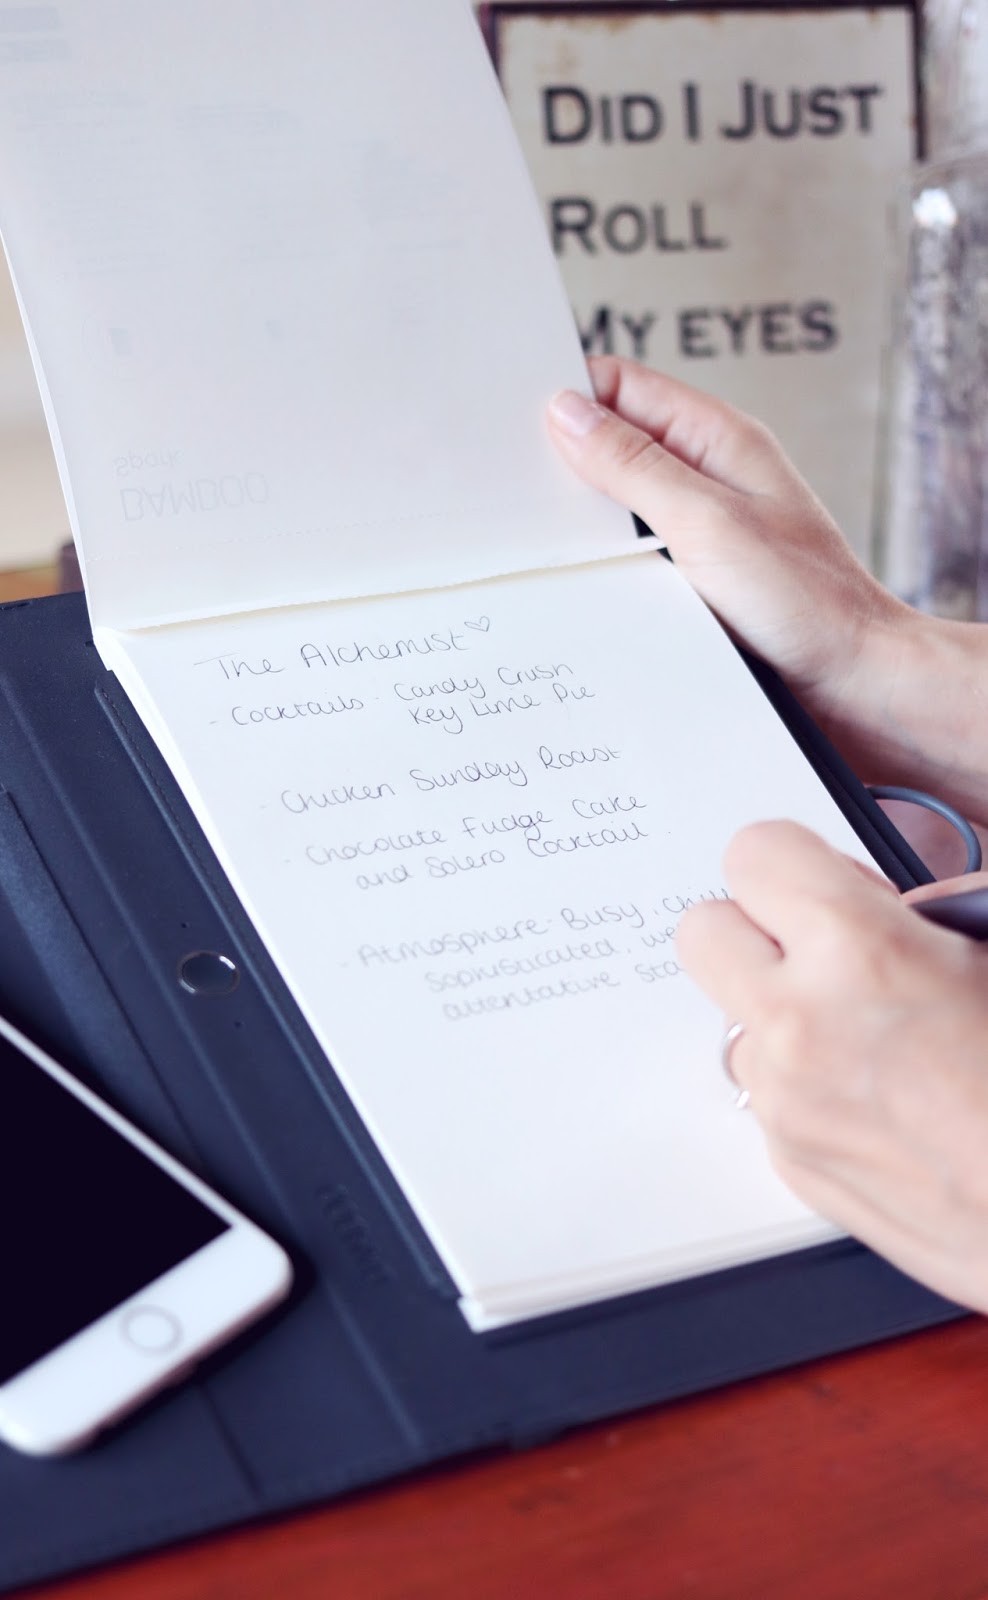 DID I JUST
ROLL
MY EYES
Spark
BAMBOO
The Alchemist ♡
- Cocktails - Candy Crush
Key Lime Pie
- Chicken Sunday Roast
- Chocolate Fudge Cake
and Solero Cocktail.
- Atmosphere - Busy, chill
Sophisticated,
attentative